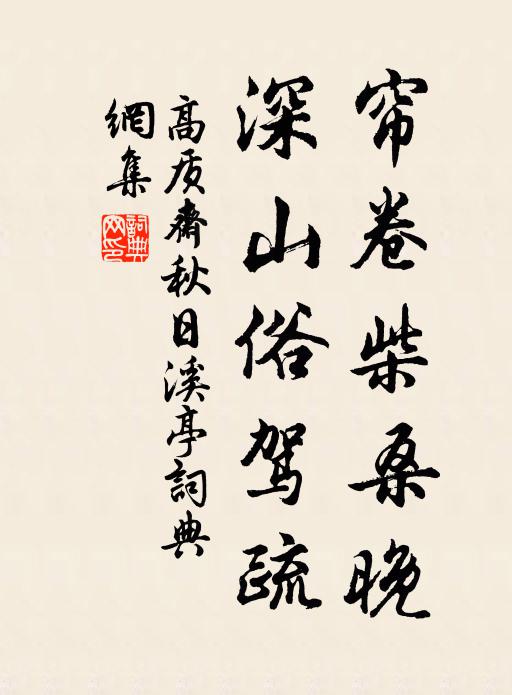 帘卷柴桑晚
深山俗驾疏
高质斋秋日溪亭詞典
網集
詞典網印